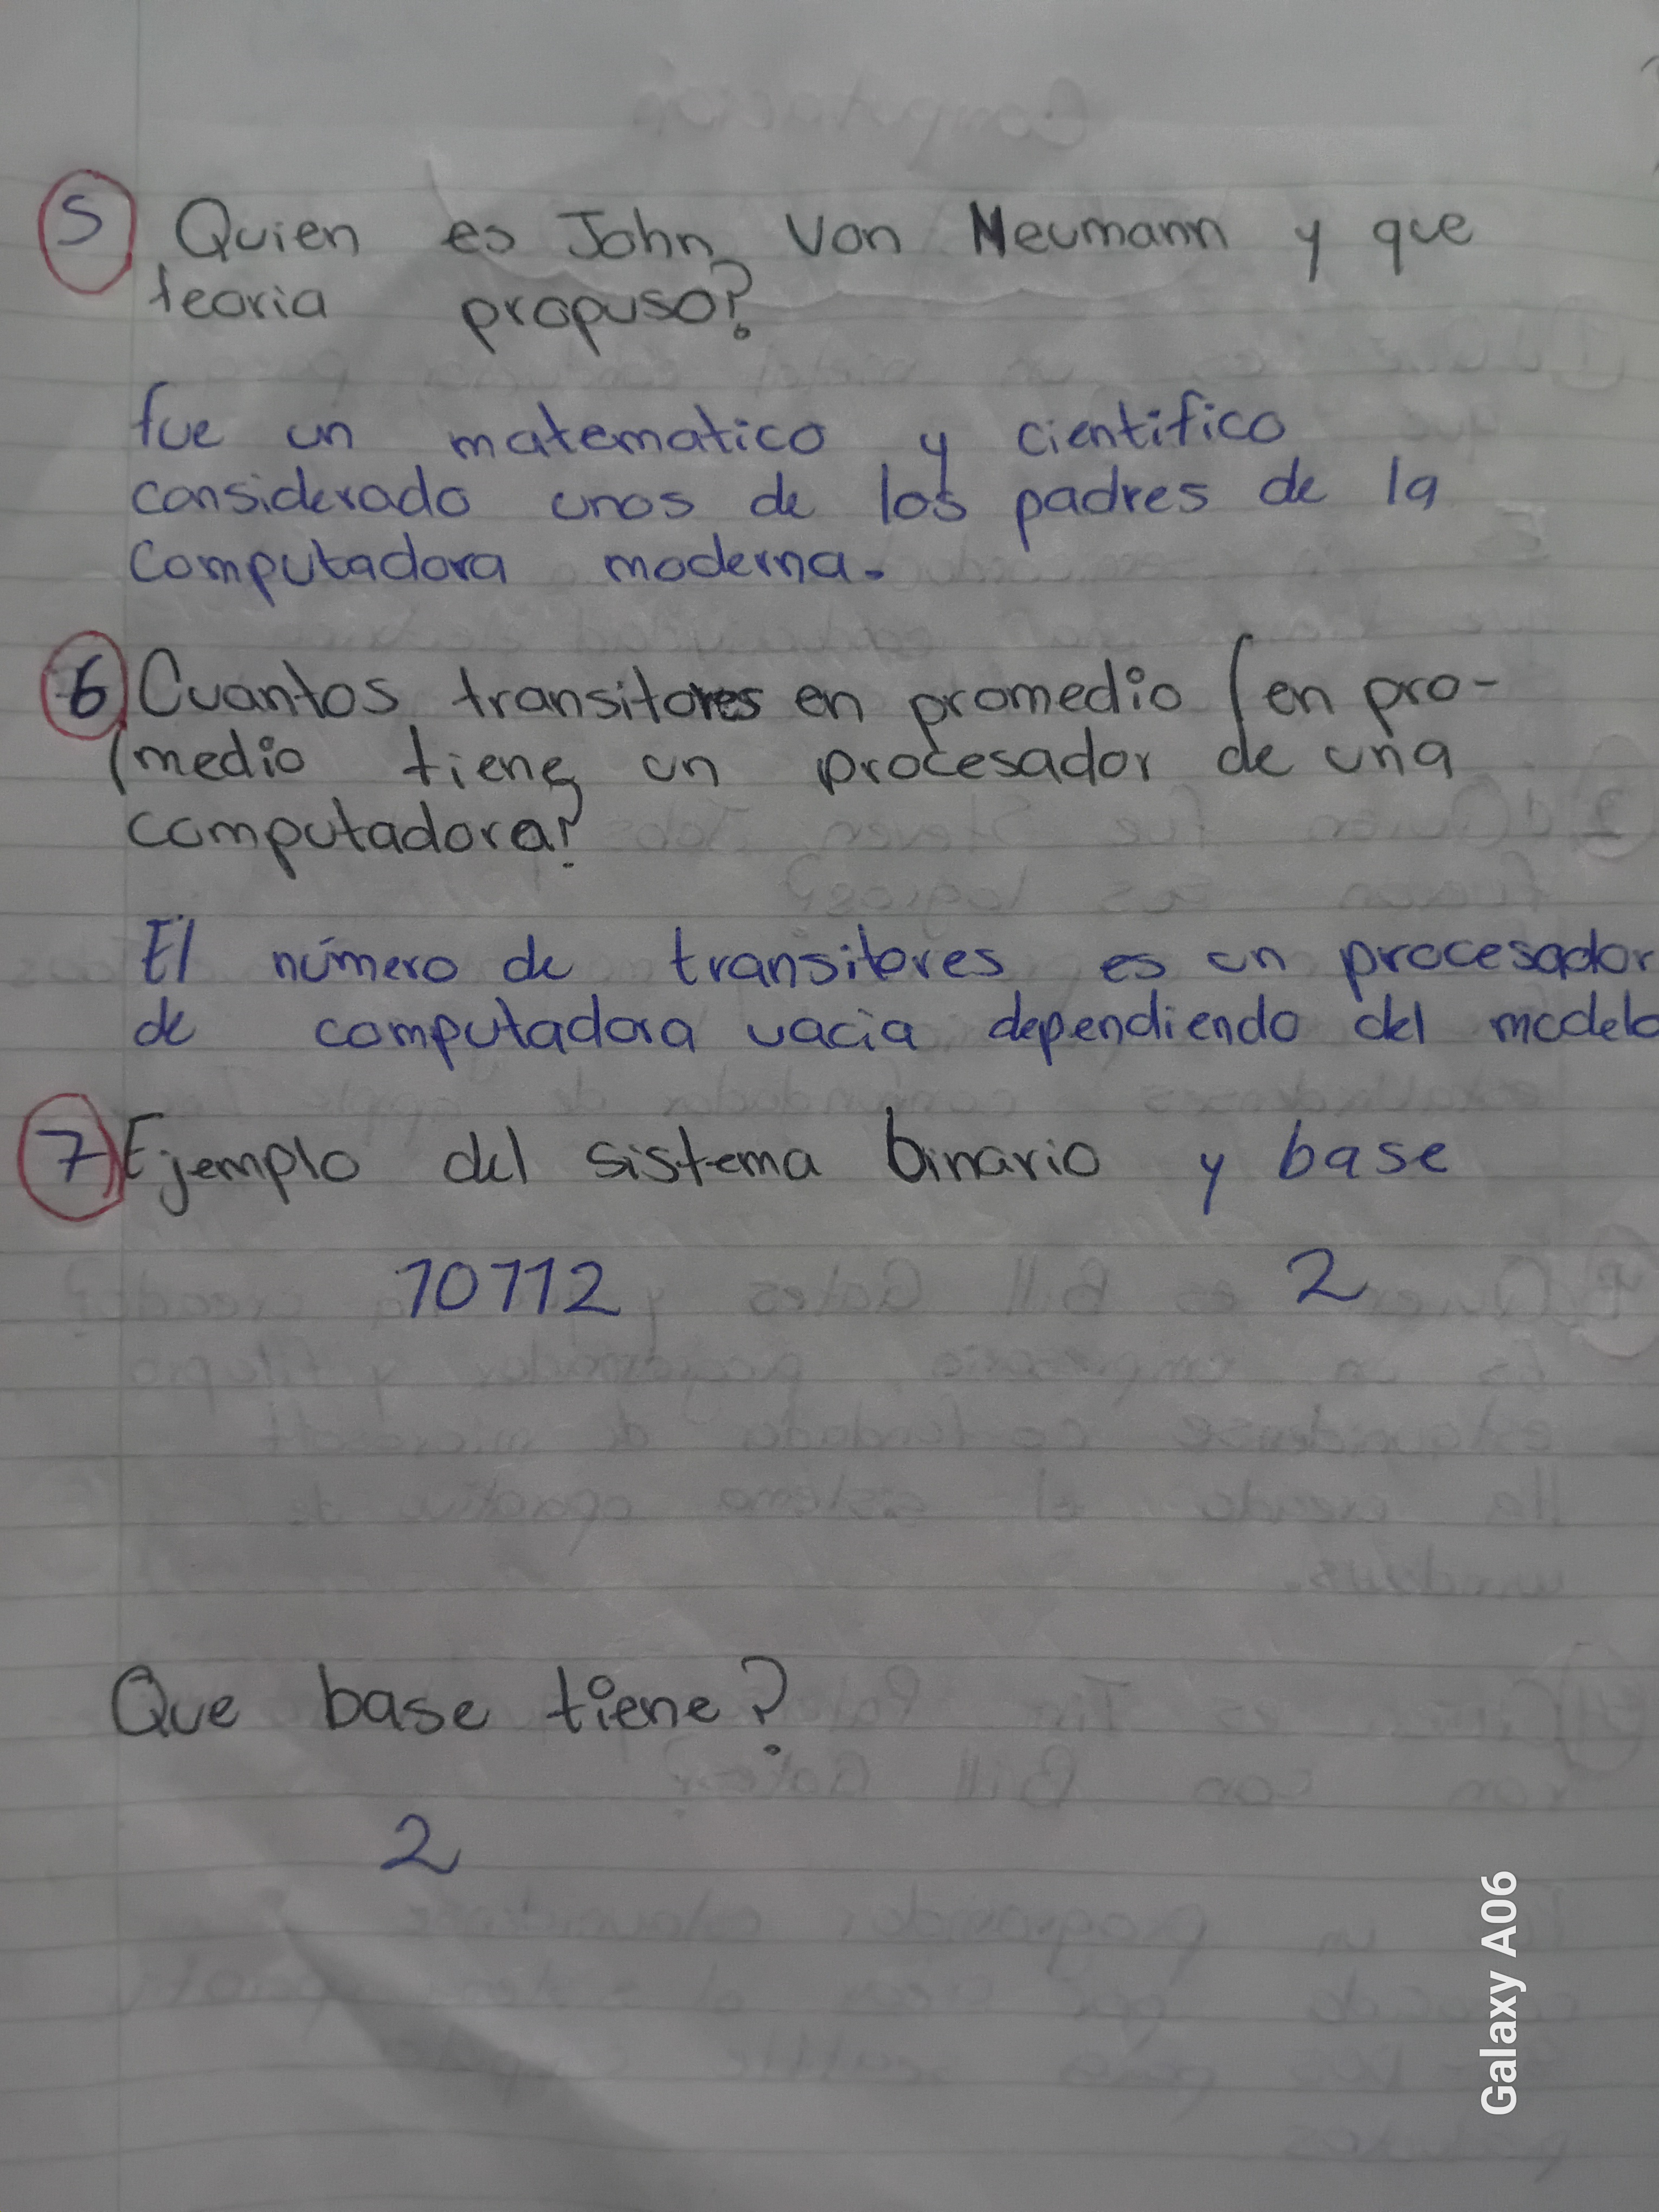 5 Quien es John Von Neumann y que
teoria propuso?
fue un matematico y cientifico
considerado unos de los padres de la
computadora moderna.
6 Cuantos transitores en promedio (en pro-
(medio tiene un procesador de una
computadora?
El número de transitores es un procesador
de computadora vacia dependiendo del modelo
7 Ejemplo del sistema binario y base
10112 2
Que base tiene?
2
Galaxy A06